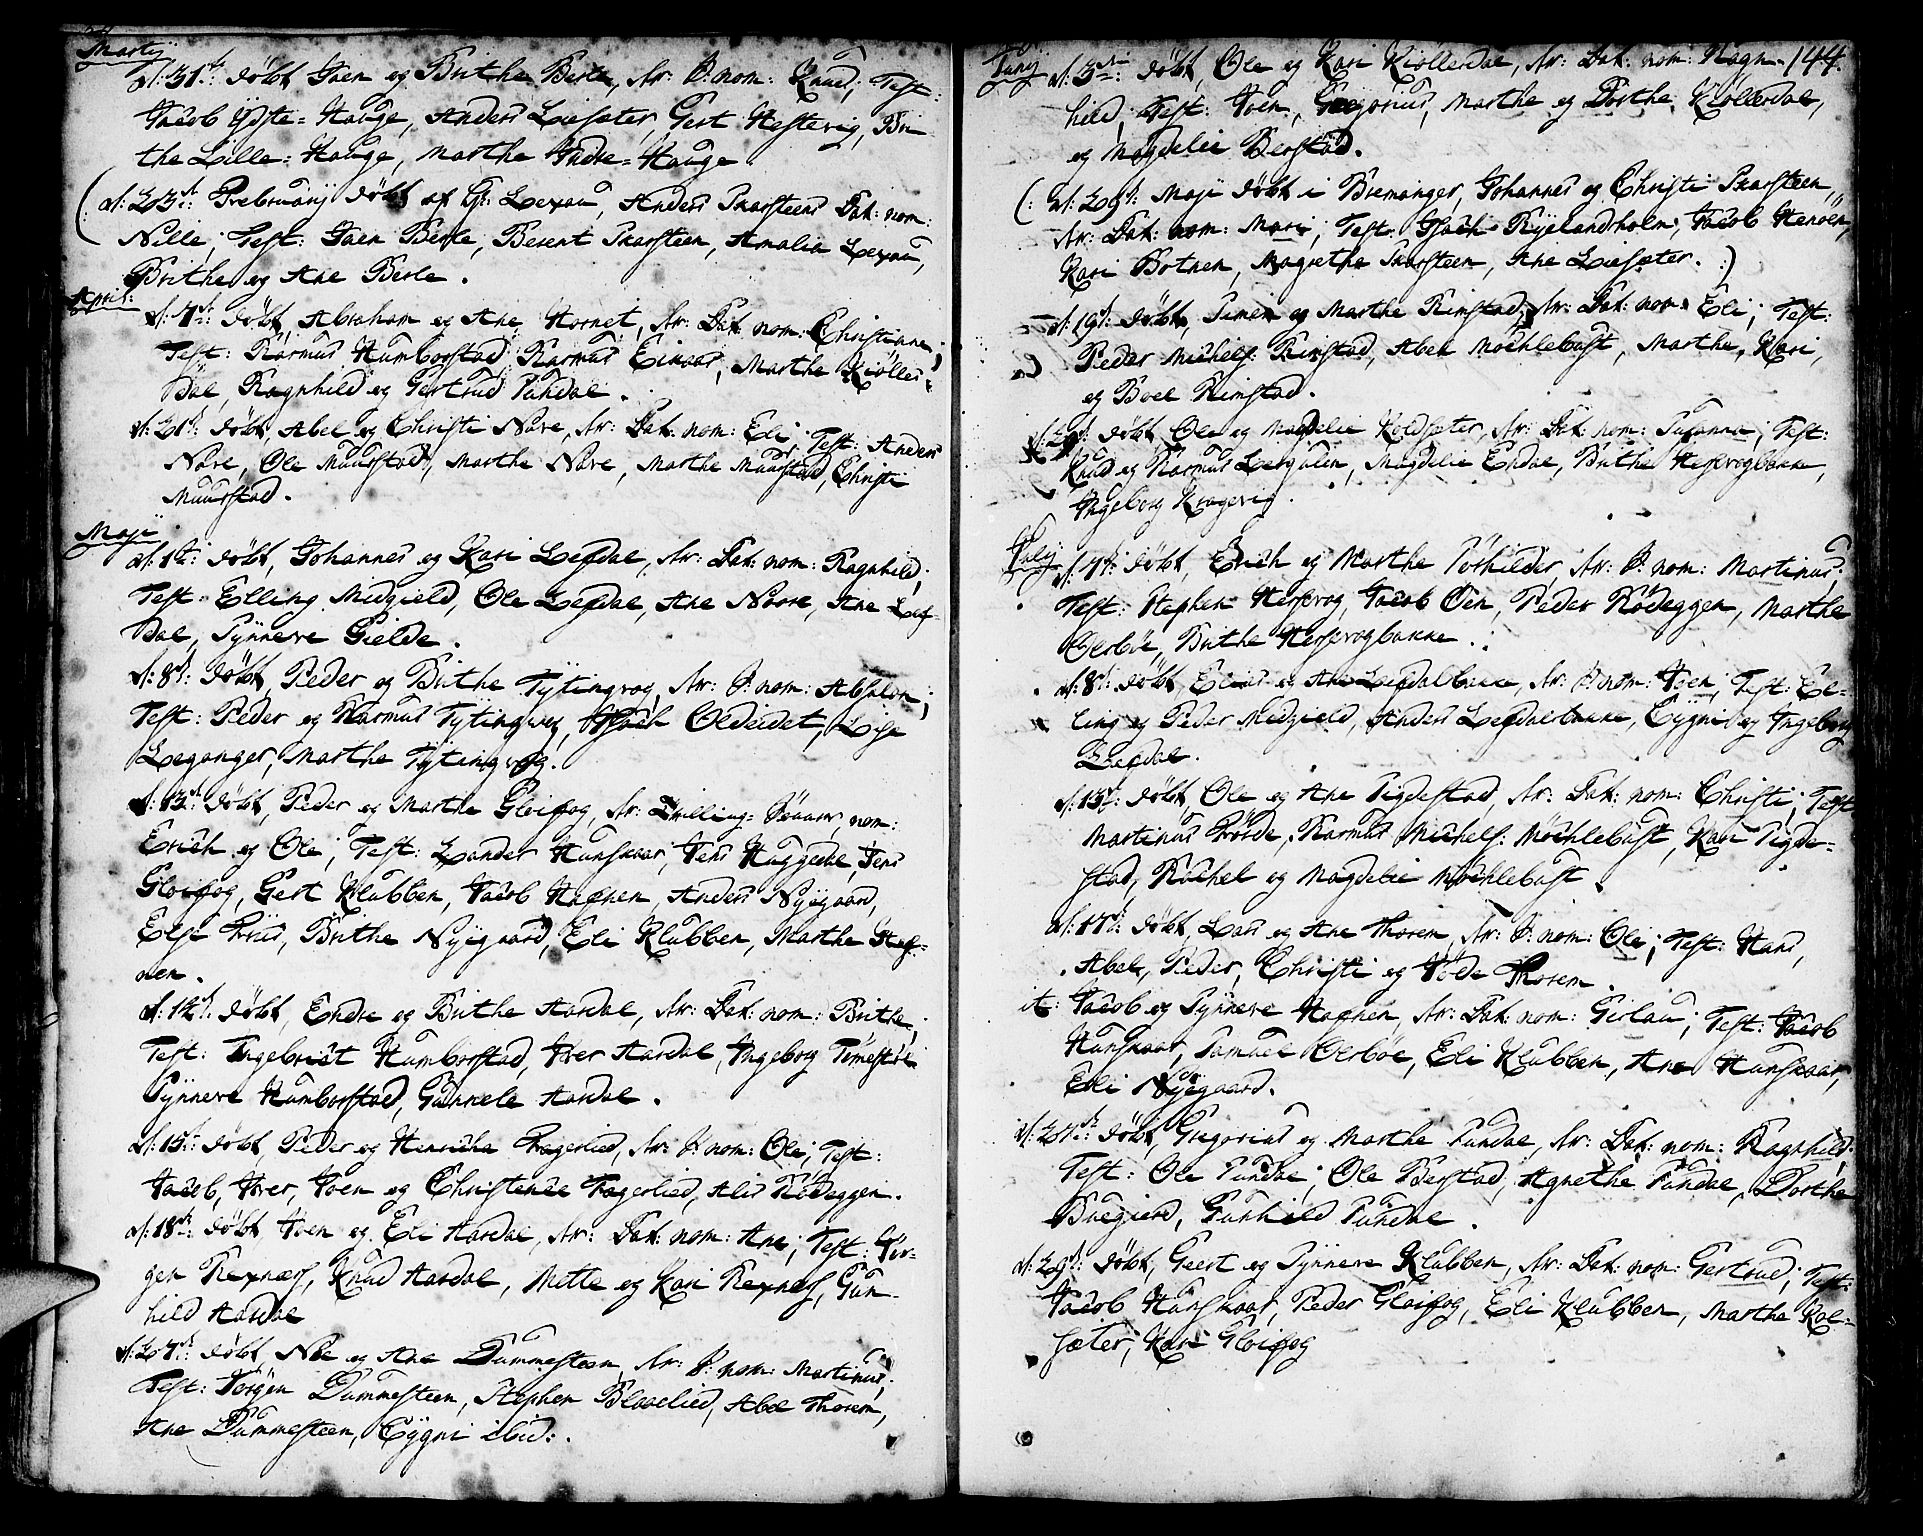 Martij
d: 31te döbt Joen og Brithe Berle, Ær: S: nom: Knud; Test:
Jacob Ydste-Hauge, Anders Liesæter, Gert Hestevig, Bri-
the Lille-Hauge, Marthe Indre-Hauge
(d: 23de Februarij döbt af Hr: Lexau, Anders Skarsteens Dat: nom:
Nille; Test: Joen Berle, Berent Skarsteen, Amalia Lexau,
Brithe og Ane Berle.
April:
d: 7de: döbt, Abraham og Ane Hornet, Ær: Dat: nom: Christiane;
Test: Rasmus Humborstad, Rasmus Einaas, Marthe Kiölles-
dal, Ragnhild og Gertrud Sundal.
d: 21de: döbt, Abel og Christi Nave, Ær: Dat: nom: Eli, Test: Anders
Nave, Ole Muurstad, Marthe Nave, Marthe Muurstad, Christi
Muurstad.
Maji
d: 1te: döbt, Johannes og Kari Lefdal, Ær: Dat: nom: Ragnhild;
Test: Elling Midgield, Ole Lefdal, Ane Nore, Ane Lef-
dal, Synneve Gielde.
d: 8de: döbt, Peder og Brithe Tytingvog, Ær: S: nom: Absalon;
Test: Peder og Rasmus Tytingvog, Isach Oldeidet, Lisa
Leganger, Marthe Tytingvog.
d: 13de: döbt, Peder og Marthe Gloifog, Ær: Tvilling-Sönner, nom:
Erich og Ole; Test: Zander Hunskaar, Jens Huggedal, Jens
Gloifog, Gert Klubben, Jacob Hafnen, Anders Nyegaard,
Else Hvid, Brithe Nyegaard, Eli Klubben, Marthe Haf-
nen.
d: 14de: döbt, Endre og Brithe Aardal, Ær: Dat: nom: Brithe;
Test: Ingebrict Humborstad, Iver Aardal, Ingeborg
Synneve Humborstad, Gunnele Aardal.
d: 15de: döbt, Peder og Henricha Fagerlied, Ær: S: nom: Ole; Test:
Jacob, Iver, Joen og Christense Fagerlied, Alis Rödeggen.
d: 18de: döbt, Joen og Eli Aardal, Ær: Dat: nom: Ane; Test: Jör-
gen Rexnæs, Knud Aardal, Mette og Kari Rexnæs, Gun-
hild Aardal
d: 27de: döbt, Noe og Ane Dummesteen, Ær: S: nom: Martinus;
Test: Jörgen Dummesteen, Stephen Blaalied, Abel Thorem,
Ane Dummesteen, Eygni ibid:.
Junij
144.
d: 3die: döbt, Ole og Kari Kiöllesdal, Ær: Dat: nom: Ragn-
hild, Test: Joen, Gregorius, Marthe og Dorthe Kiöllesdal,
og Magdeli Berstad.
(: d: 29de: Maji döbt i Bremanger, Johannes og Christi Skarsteen,
Ær: Dat: nom: Mari; Test: Isach Ryelandholm, Jacob Henöen,
Kari Botnen, Magrethe Skarsteen, Ane Liesæter. :)
d: 19de: döbt, Simen og Marthe Rimstad, Ær: Dat: nom: Eli; Test:
Peder Michels: Rimstad, Aben Möchlebust, Marthe, Kari,
og Boel Rimstad.
d: 29de döbt Ole og Magdeli Koldsæter, Ær: Dat: nom: Susanna; Test:
Knud og Rasmus Levgulen, Magdeli Endal, Brithe Hessevogbakke,
Ingeborg Kragevig.
Julij
d: 7de: döbt, Erich og Marthe Torhilder, Ær: S: nom: Martinus;
Test: Stephen Hessevog, Jacob Öen, Peder Rödeggen, Marthe
Osböe, Brithe Hessevogbakke.
d: 8de: döbt, Elias og Ane Lefdalbakke, Ær: S: nom: Joen, Test: El-
ling og Peder Midgield, Anders Lefdalbakke, Eygni og Ingeborg
Lefdal.
d: 13de: döbt, Ole og Ane Sigdestad, Ær: Dat: nom: Christi; Test
Martinus Hvide, Rasmus Michels: Möchlebust, Kari Sigde-
stad, Rachel og Magdeli Möchlebust.
d: 17de: döbt, Lars og Ane Thorem, Ær: S: nom: Ole; Test: Hans,
Abel, Peder, Christi og Jöde Thorem.
it: Jacob og Synneve Hafnen, Ær: Dat: nom: Girlau; Test: Jacob
Hunskaar, Samuel Osböe, Eli Klubben, Ane Hunskaar,
Eli Nyegaard.
d: 24de: döbt, Gregorius og Marthe Sundal, Ær: Dat: nom: Ragnhild;
Test: Ole Sundal, Ole Berstad, Agnethe Sundal, Dorthe
Buegierd, Gunhild Sundal.
d: 29de: döbt, Geert og Synneve Klubben, Ær: Dat: nom: Gertrud; Test:
Jacob Hunskaar, Peder Gloifog, Eli Klubben, Marthe Kol-
sæter, Kari Gloifog